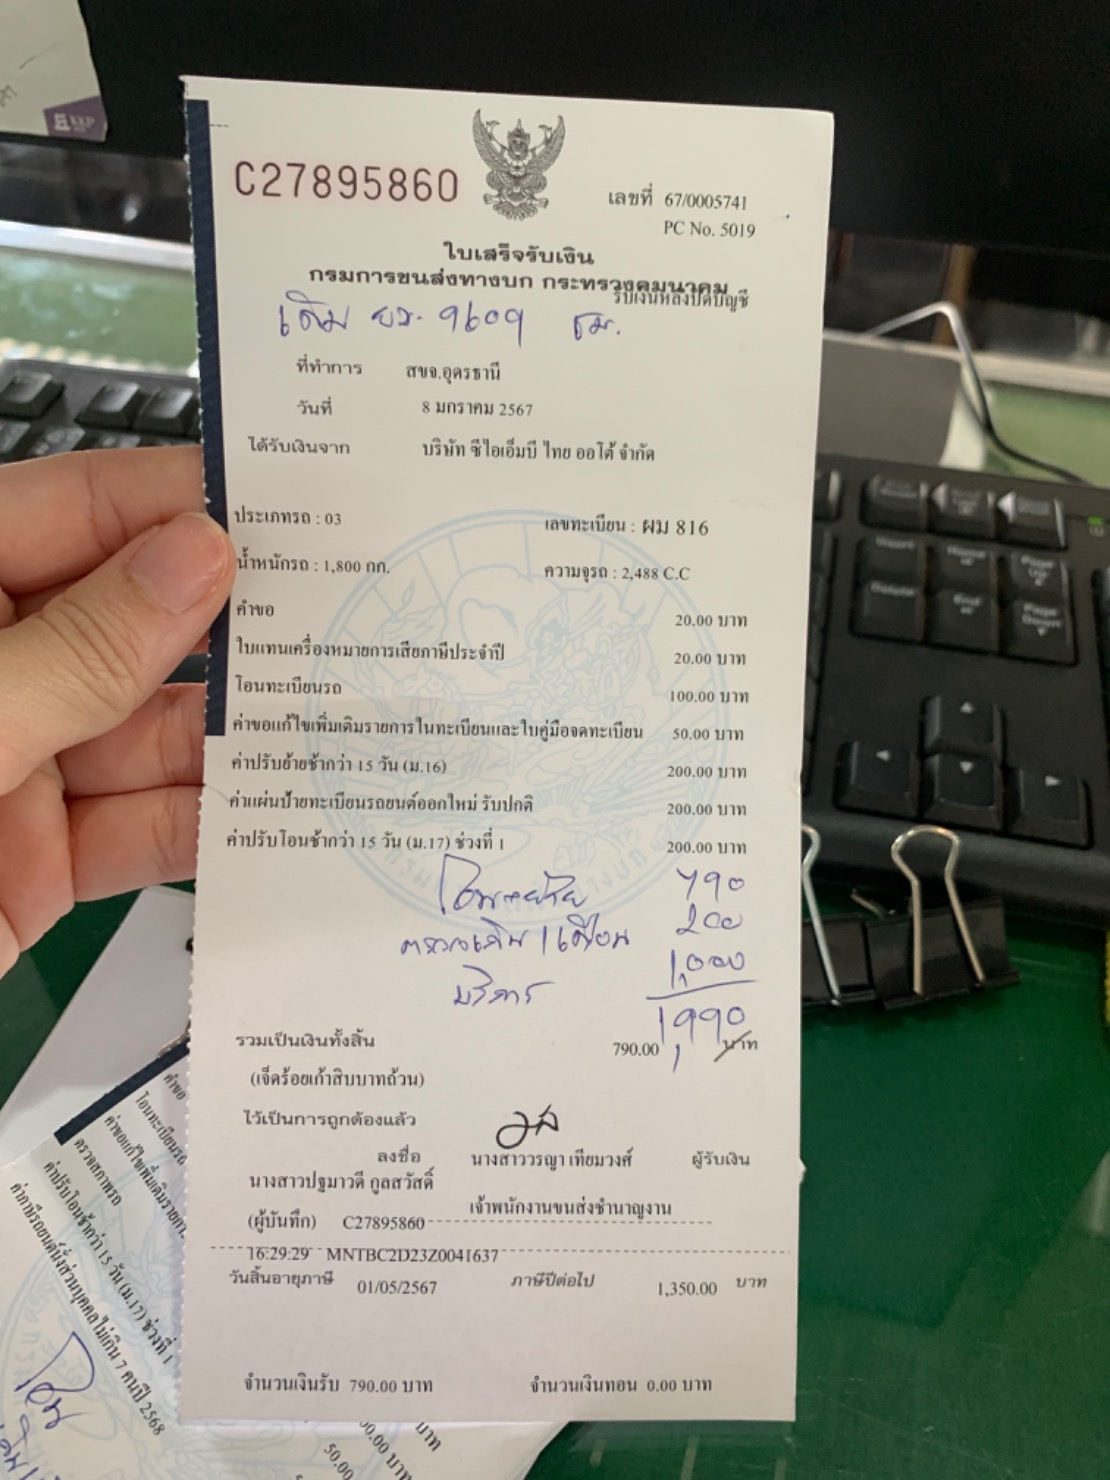 KKP
C27895860
เลขที่ 67/0005741
PC No. 5019
ใบเสร็จรับเงิน
กรมการขนส่งทางบก กระทรวงคมนาคม
รับเงินหลังปิดบัญชี
เดิม ยว. 9609 ชม.
ที่ทำการ สขจ.อุดรธานี
วันที่ 8 มกราคม 2567
ได้รับเงินจาก บริษัท ซีไอเอ็มบี ไทย ออโต้ จำกัด
ประเภทรถ : 03 เลขทะเบียน : ผม 816
น้ำหนักรถ : 1,800 กก. ความจุรถ : 2,488 C.C
คำขอ 20.00 บาท
ใบแทนเครื่องหมายการเสียภาษีประจำปี 20.00 บาท
โอนทะเบียนรถ 100.00 บาท
ค่าขอแก้ไขเพิ่มเติมรายการในทะเบียนและใบคู่มือจดทะเบียน 50.00 บาท
ค่าปรับย้ายช้ากว่า 15 วัน (ม.16) 200.00 บาท
ค่าแผ่นป้ายทะเบียนรถยนต์ออกใหม่ รับปกติ 200.00 บาท
ค่าปรับโอนช้ากว่า 15 วัน (ม.17) ช่วงที่ 1 200.00 บาท
790
200
บริการ 1,000
1,990
รวมเป็นเงินทั้งสิ้น 790.00 บาท
(เจ็ดร้อยเก้าสิบบาทถ้วน)
ไว้เป็นการถูกต้องแล้ว
ลงชื่อ นางสาววรญา เทียมวงศ์ ผู้รับเงิน
นางสาวปฐมาวดี กูลสวัสดิ์
เจ้าพนักงานขนส่งชำนาญงาน
(ผู้บันทึก) C27895860
16:29:29 MNTBC2D23Z0041637
วันสิ้นอายุภาษี 01/05/2567 ภาษีปีต่อไป 1,350.00 บาท
จำนวนเงินรับ 790.00 บาท จำนวนเงินทอน 0.00 บาท
คำขอ
โอนทะเบียนรถ
ค่าขอแก้ไขเพิ่มเติมรายการ
ตรวจสภาพรถ
ค่าปรับโอนช้ากว่า 15 วัน (ม.17) ช่วงที่ 1
ค่าภาษีรถยนต์นั่งส่วนบุคคลไม่เกิน 7 คนปี 2568
โอน